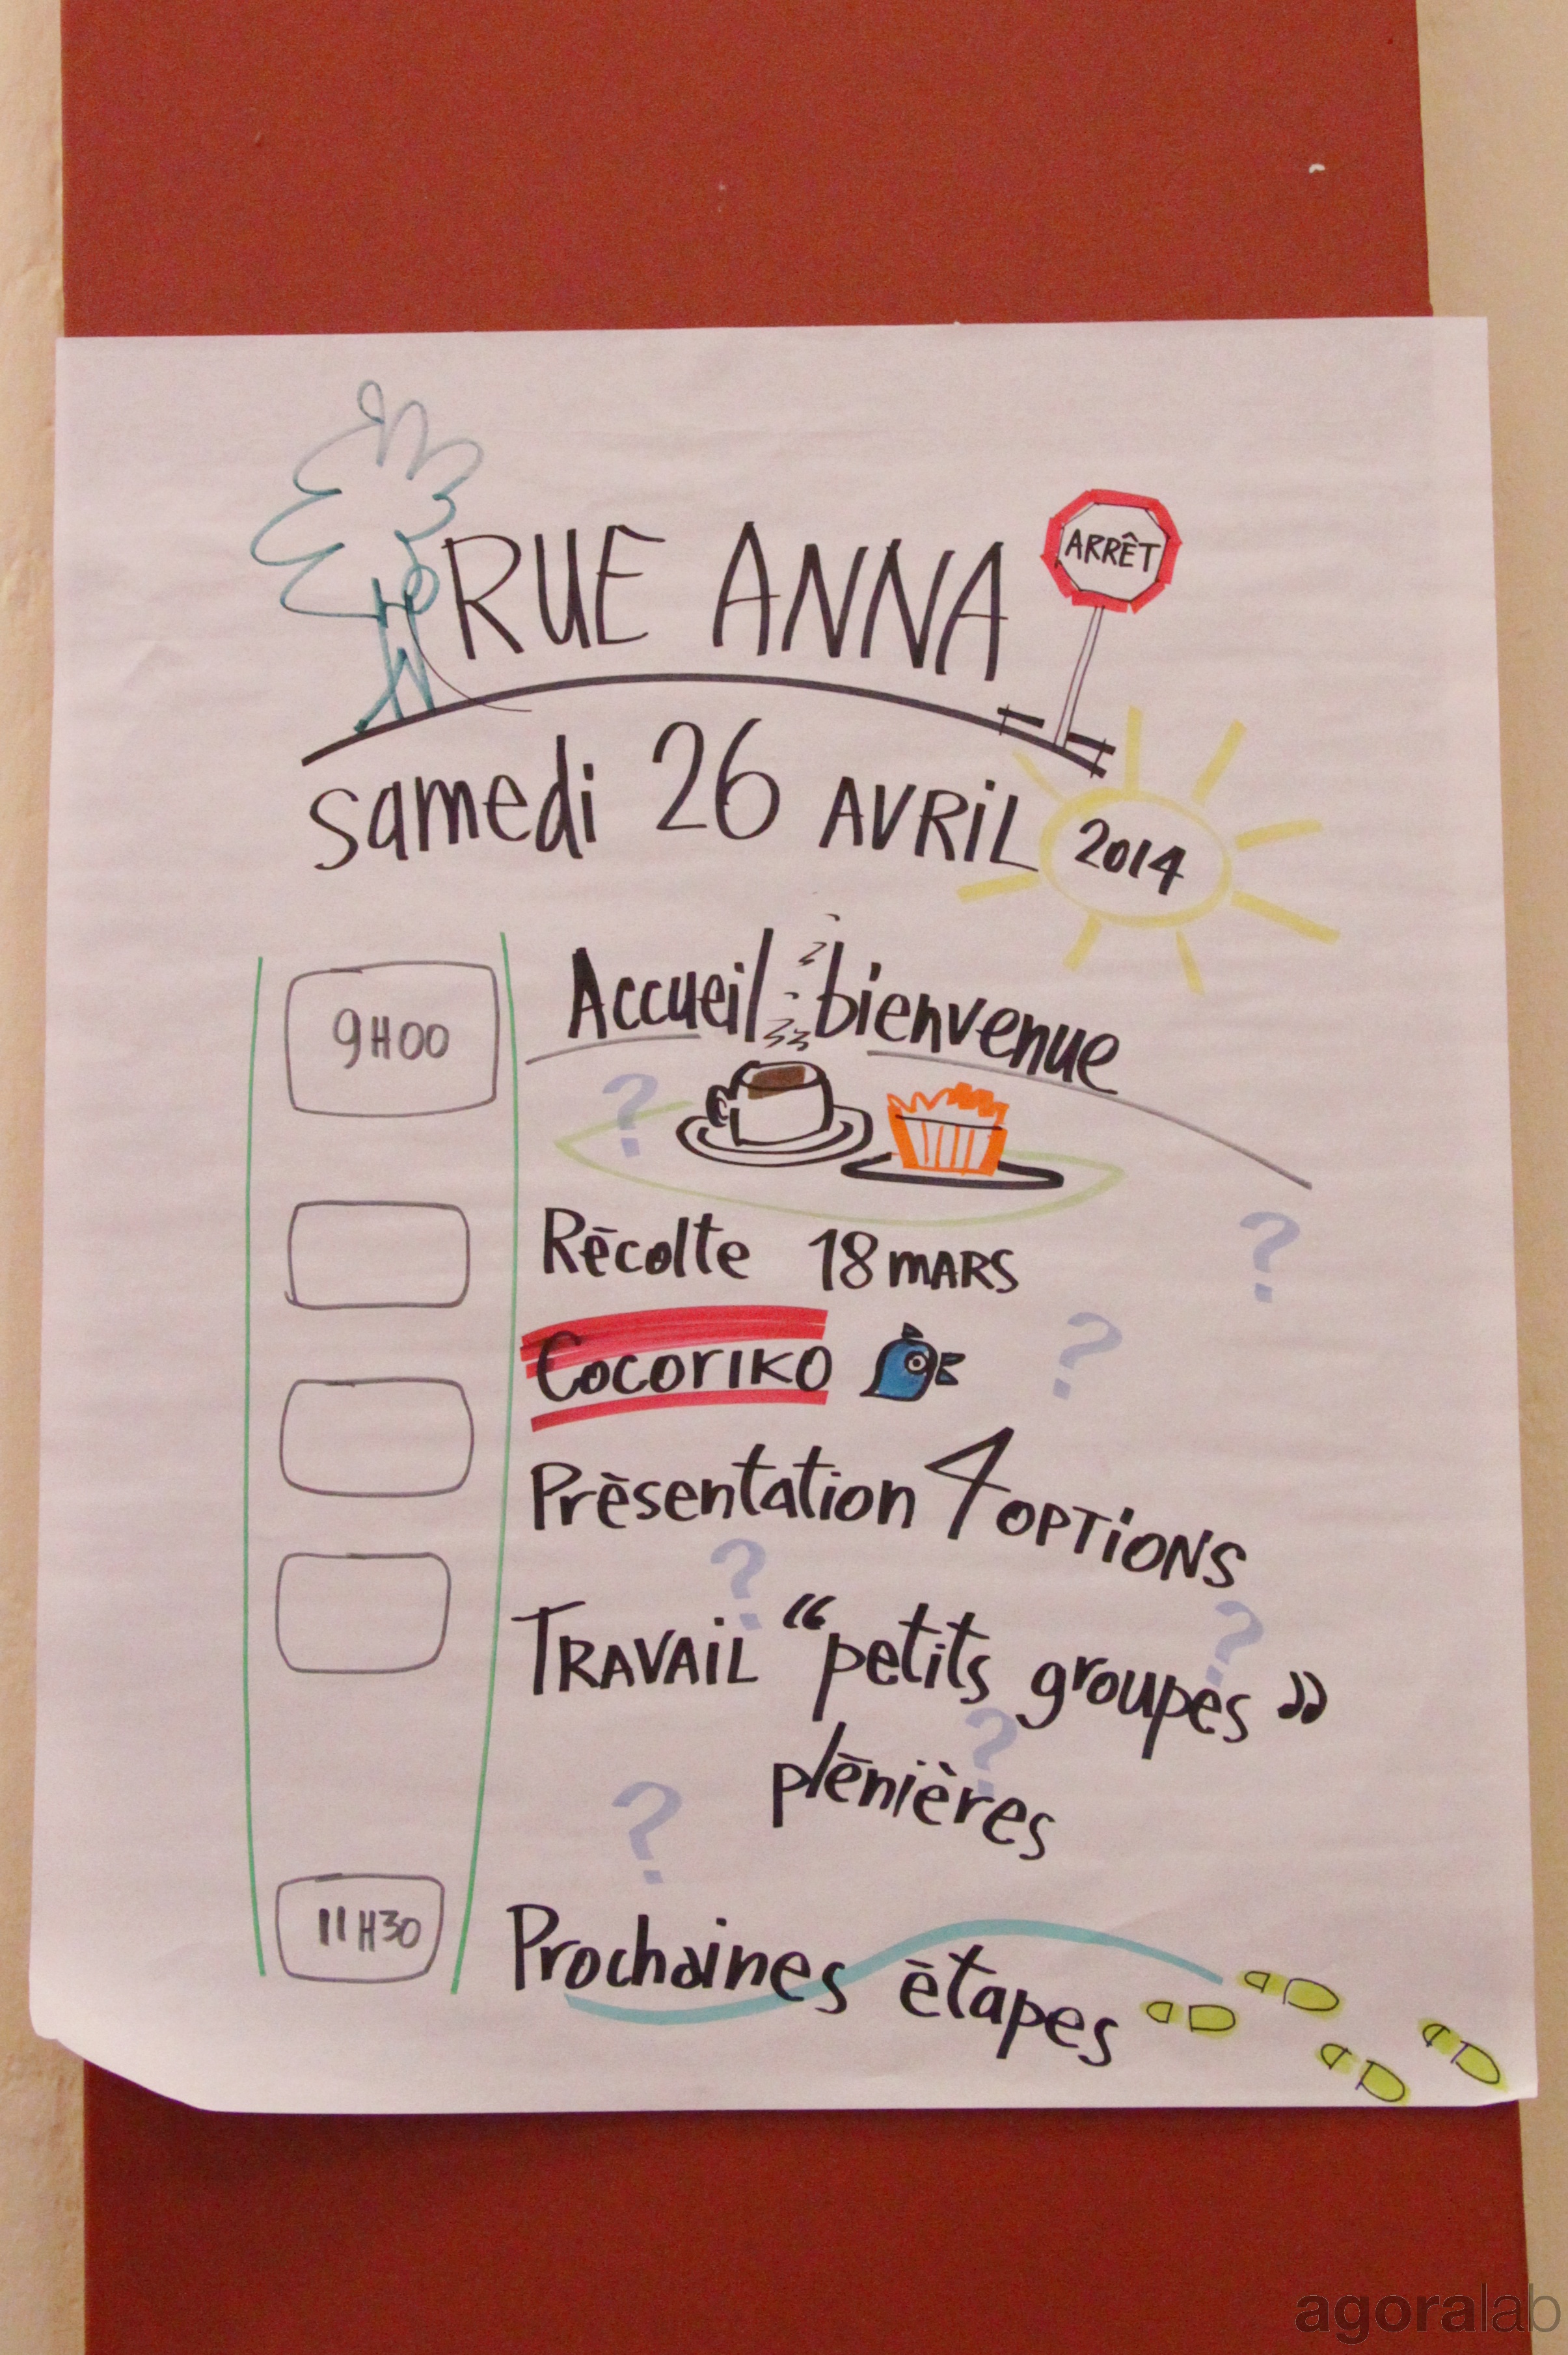 RUE ANNA
ARRÊT
samedi 26 AVRIL 2014
9H00
Accueil bienvenue
?
Récolte 18 MARS
?
Cocoriko
?
Présentation 4 OPTIONS
?
?
TRAVAIL “petits groupes”
?
plénières
?
11H30
Prochaines étapes
agoralab